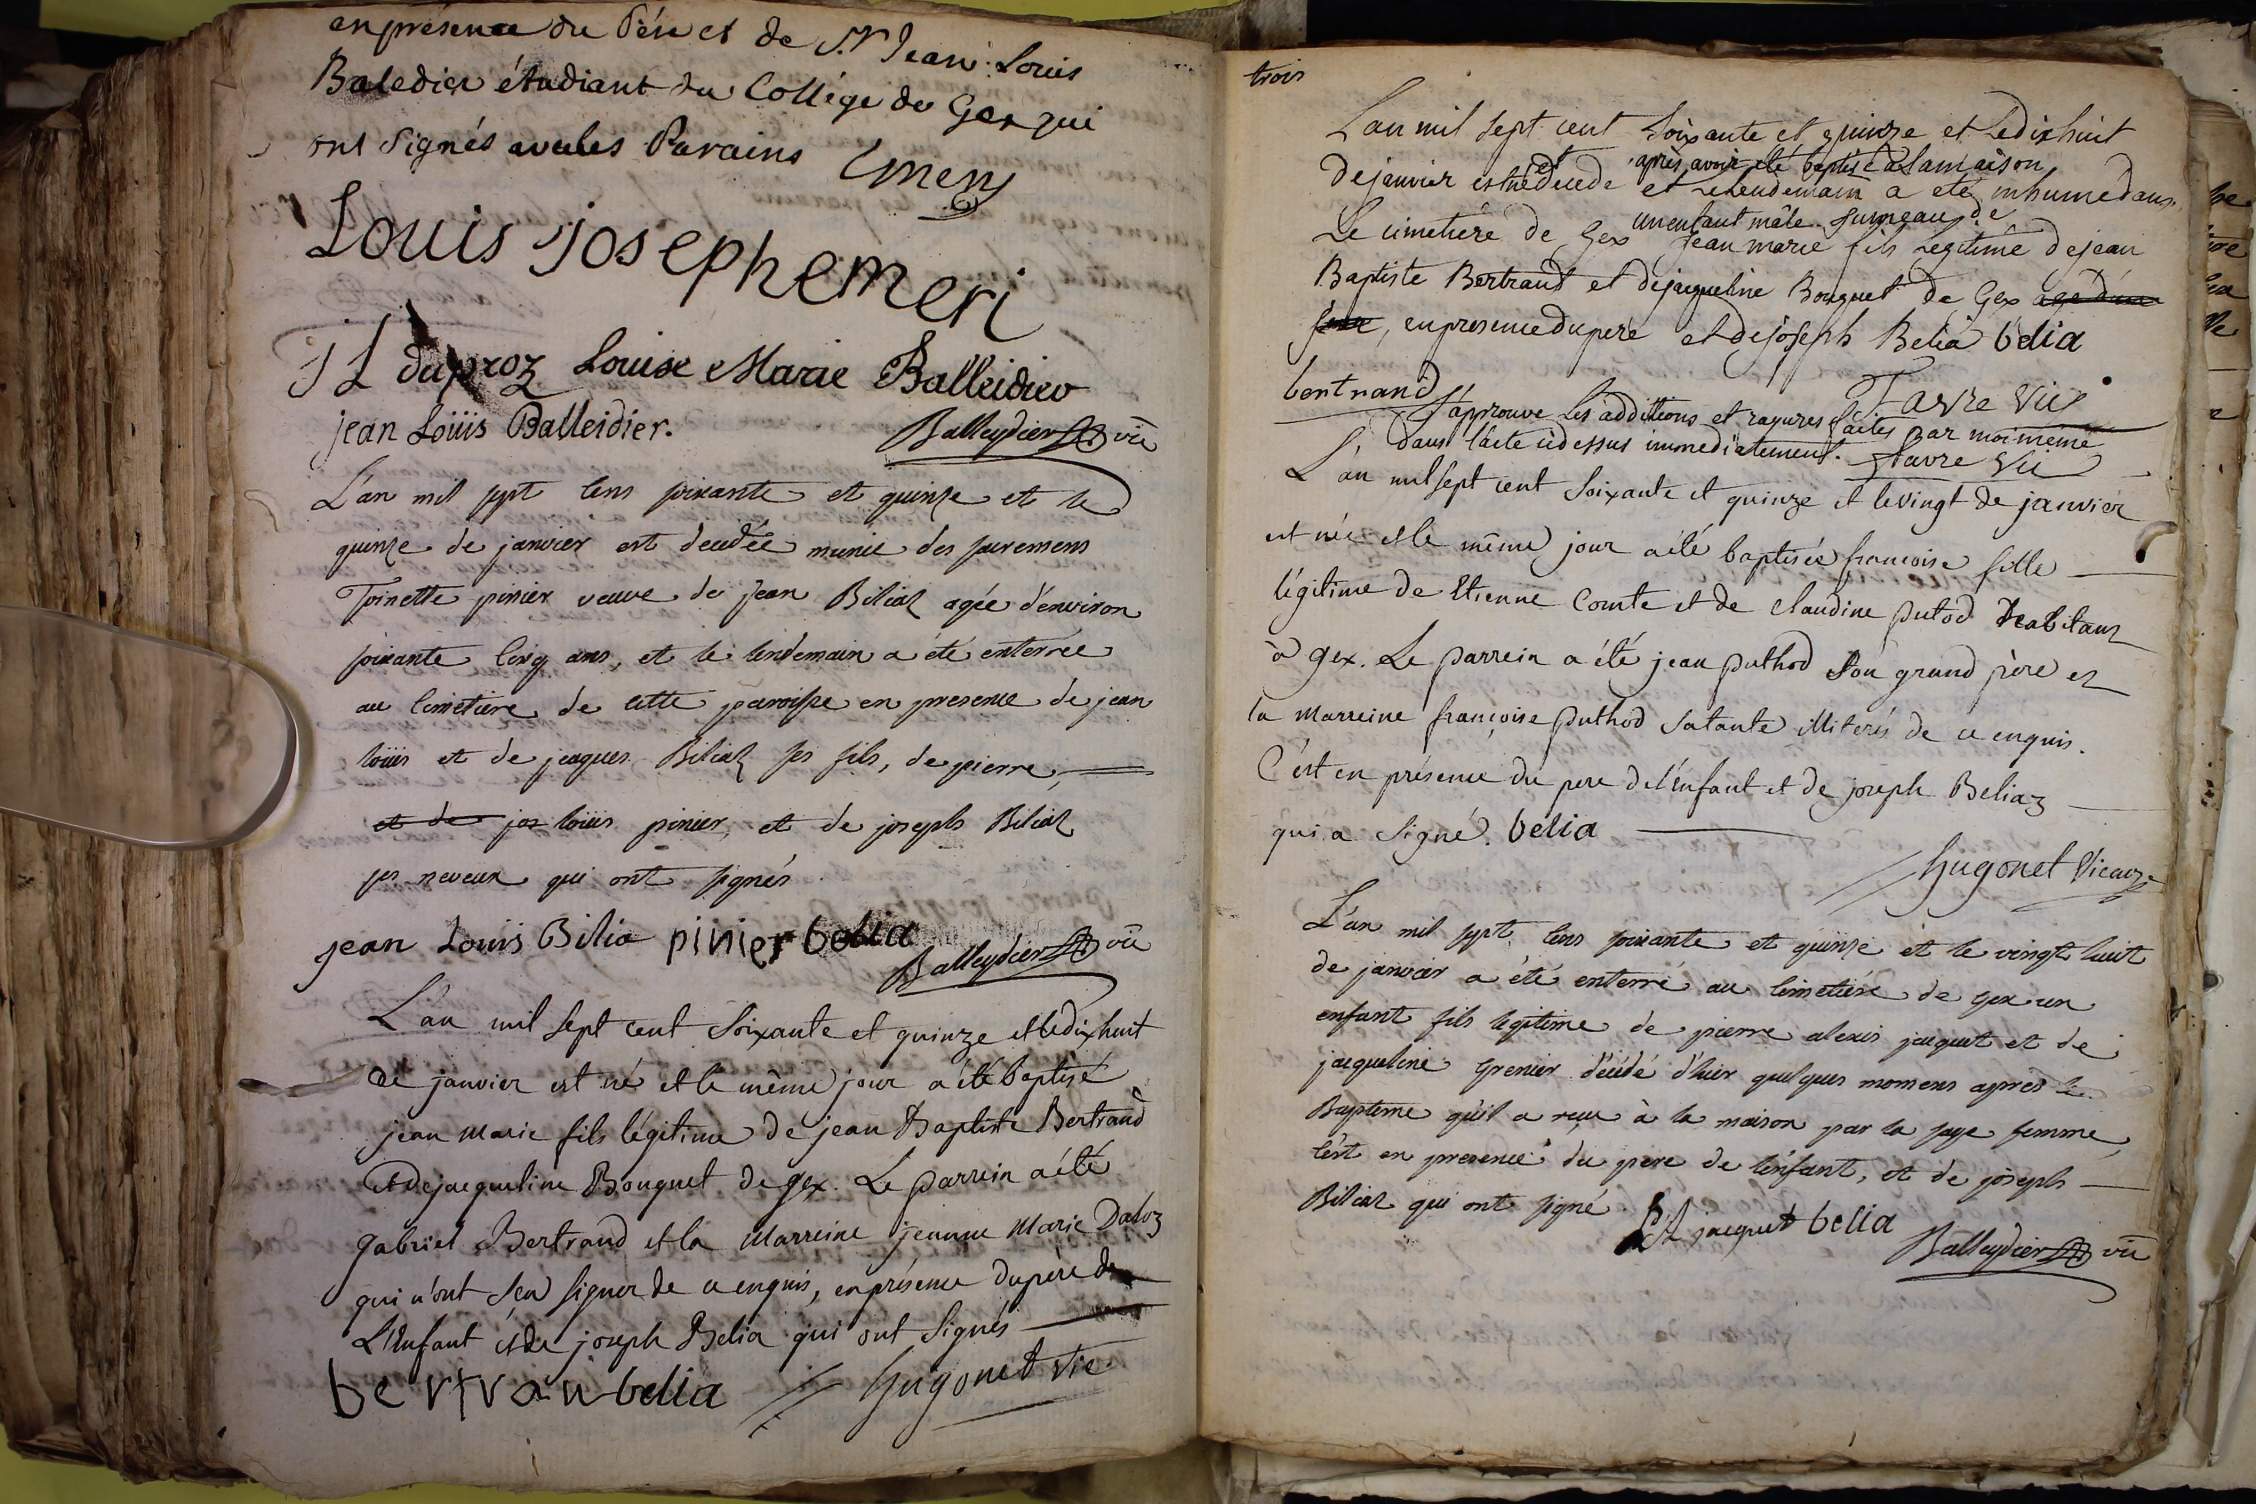 en présence du Père et de S.r Jean Louis
Baledier étudiant du Collége de Gex qui
ont Signés avec les Parains Emery
Louis josephemeri
j L duproz Louise Marie Balleidier
jean Loüis Balleidier. Balleydier vic
L'an mil sept cens soixante et quinze et le
quinze de janvier est decedée munie des sacremens
Toinette pinier veuve de jean Biliaz agée d'environ
soixante cinq ans, et le lendemain a été enterrée
au cimetiere de cette paroisse en presence de jean
loüis et de jaques Biliaz ses fils, de pierre,
et de jos loüis pinier, et de joseph Biliaz
ses neveux qui ont signés
jean Louis Bilia pinier belia
Balleydier vic
L'an mil sept cent soixante et quinze et le dix huit
de janvier est né et le même jour a été baptisé
jean marie fils légitime de jean Baptiste Bertrand
et de jacqueline Bouquet de gex. Le parrein a été
gabriel Bertrand et la Marreine jeanne Marie Daloz
qui n'ont sçu signer de ce enquis, en présence du père de
L'Enfant et de joseph Belia qui ont signés
bertran belia Hugonet vic
trois
L'an mil sept cent soixante et quinze et le dix huit
après avoir eté baptisé à la maison
de janvier est né et decede et le lendemain a eté inhumé dans
un enfant mâle jumeau de
Le cimetière de Gex jean marie fils Legitime de jean
Baptiste Bertrand et de jacqueline Bouquet de Gex agé d'une
, en presence du pere et de joseph Belia belia
bertrand Favre Vic
J'approuve les additions et rayures faites par moi même
dans l'acte cidessus immediatement. Favre Vic
L'an mil sept cent soixante et quinze et le vingt de janvier
est née et le même jour a été baptisée françoise fille
légitime de Etienne Comte et de Claudine putod habitans
à gex. Le parrein a été jean puthod son grand père et
la marreine françoise puthod sa tante illiterés de ce enquis.
C'est en présence du pere de l'Enfant et de joseph Beliaz
qui a signé. belia
Hugonet Vicaire
L'an mil sept cens soixante et quinze et le vingt huit
de janvier a été enterré au cimetiére de gex un
enfant fils legitime de pierre alexis jaquet et de
jaqueline grenier décédé d'hier quelques momens après le
Bapteme qu'il a reçu à la maison par la sage femme,
c'est en presence du pere de l'enfant, et de joseph
Biliaz qui ont signé
jaquet belia
Balleydier vic